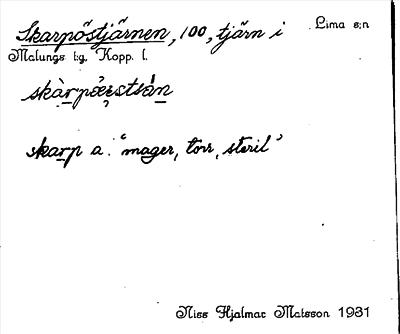 Skarpöstjärnen, 100, tjärn i Lima s:n
Malungs t:g. Kopp. l.
skarp a. "mager, torr, steril"
Niss Hjalmar Matsson 1931